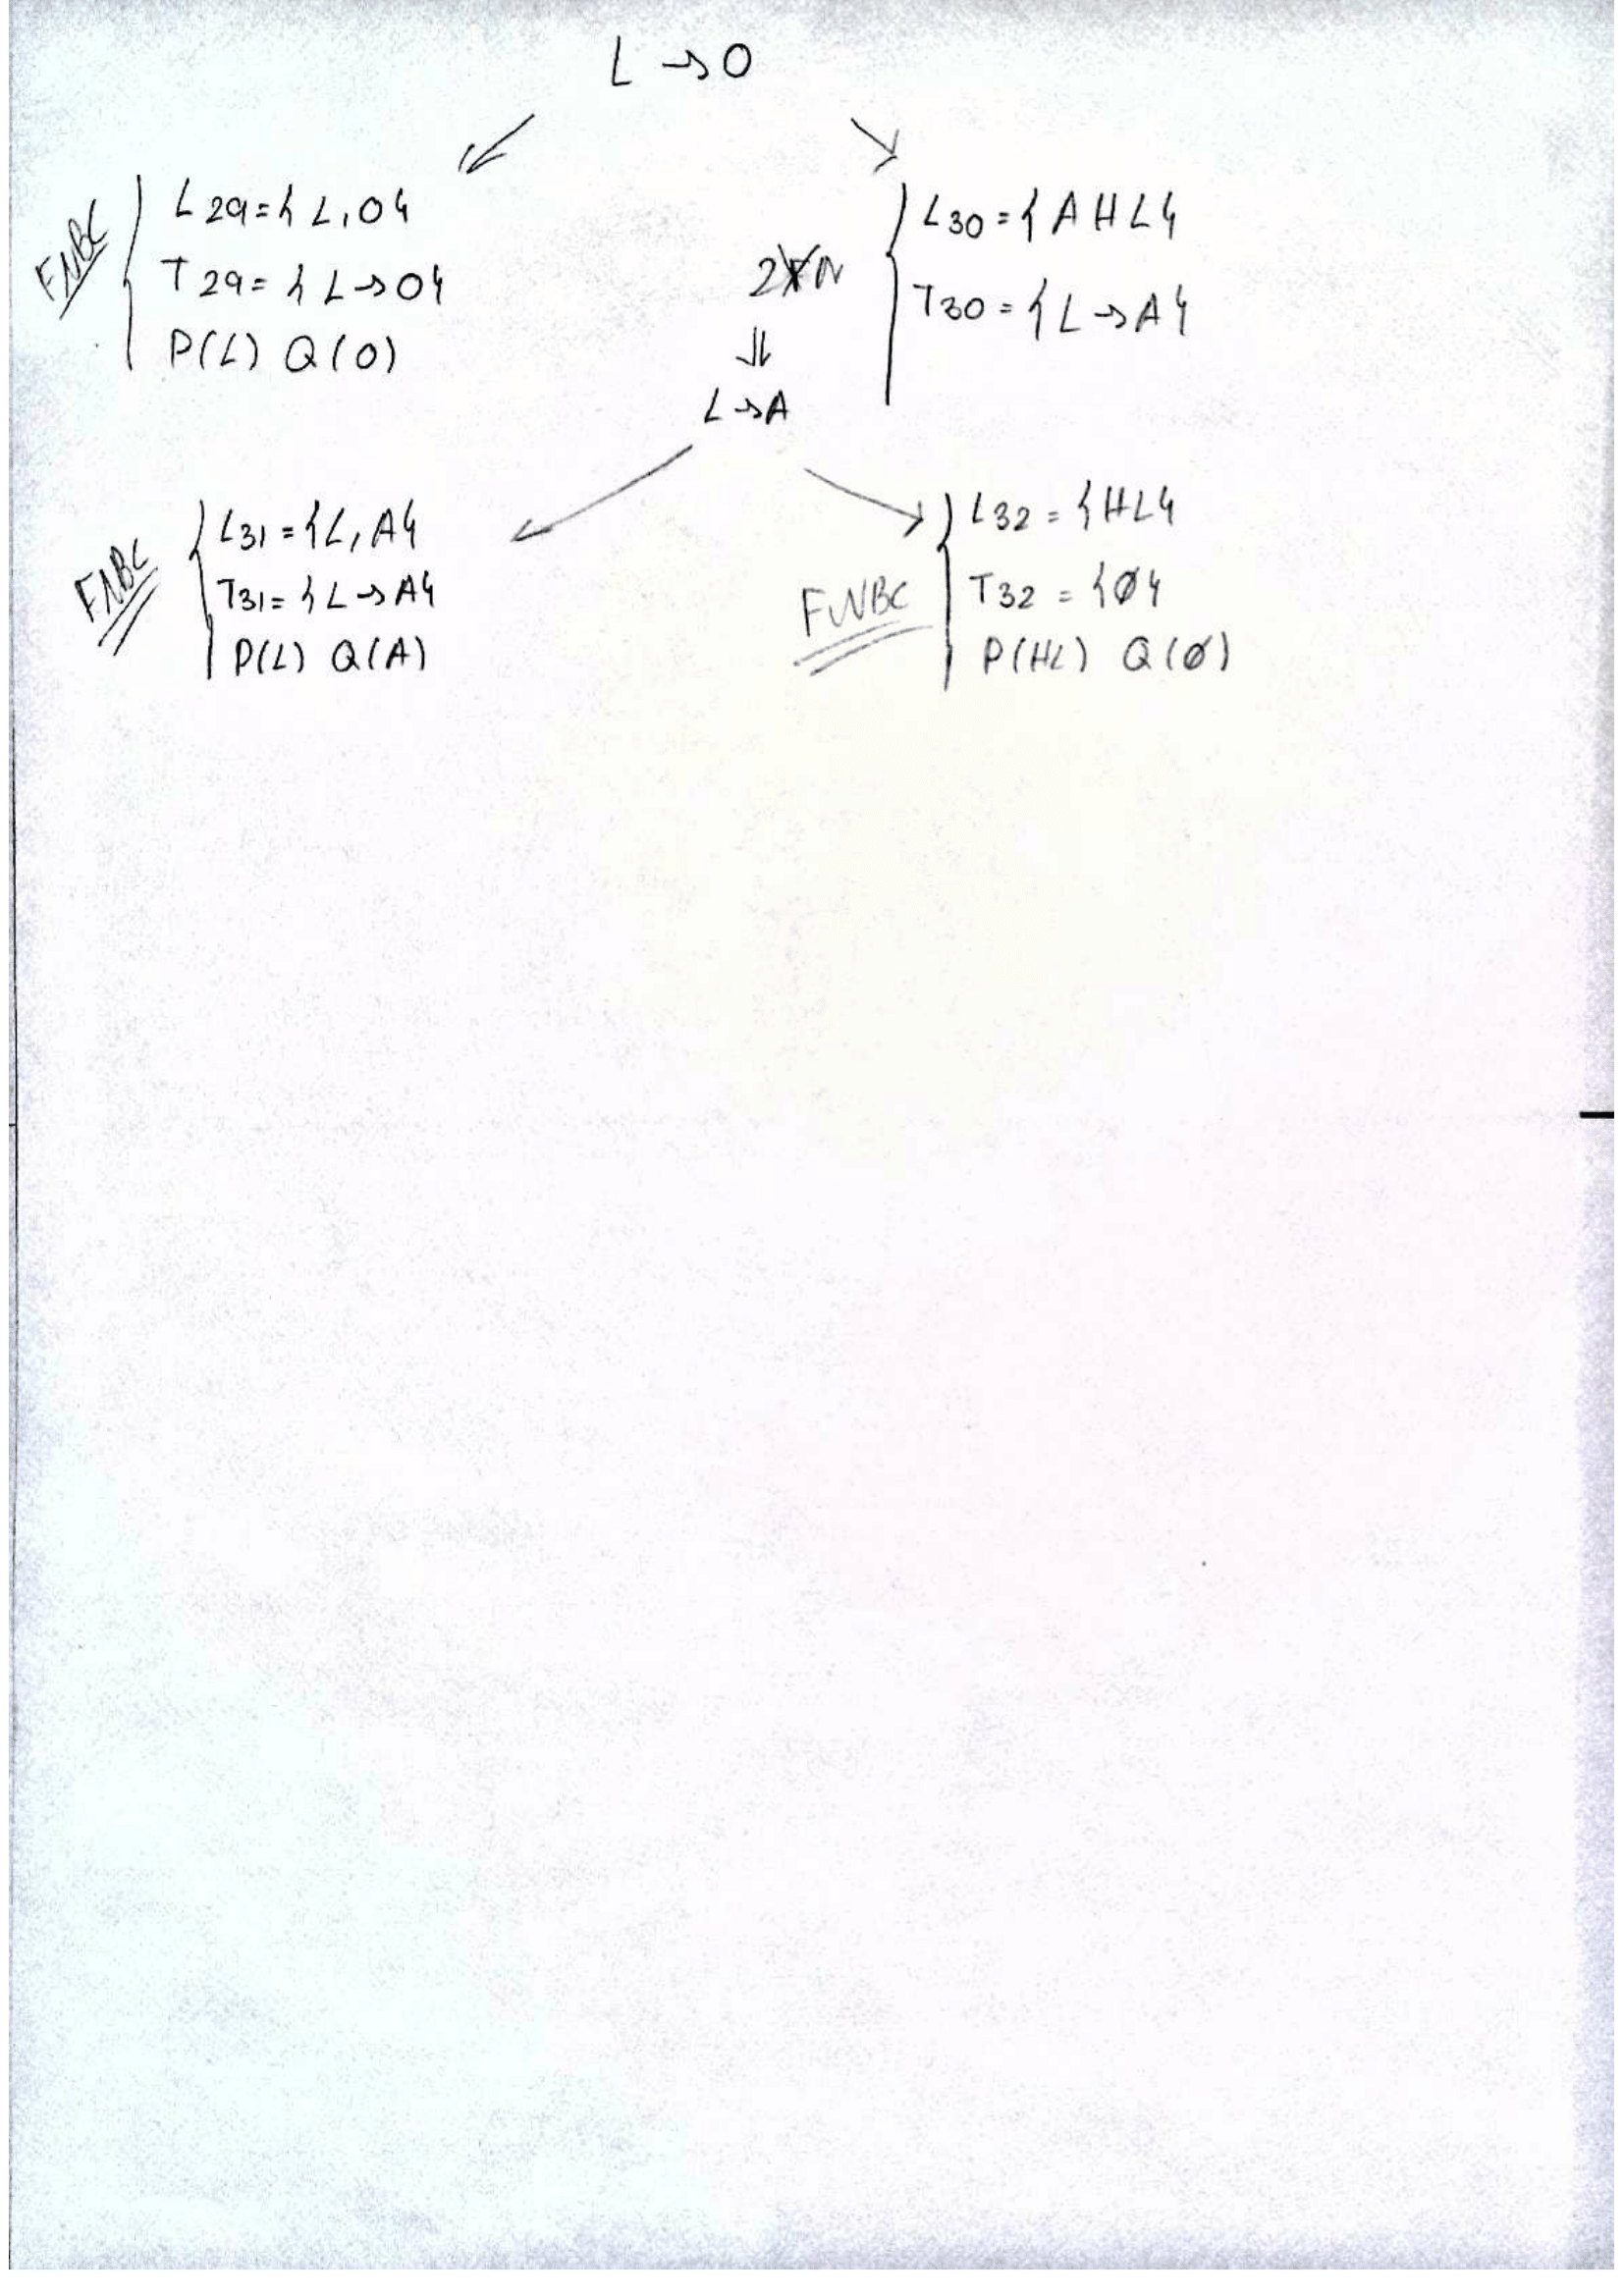 L → O
FNBC
L29 = { L, O }
T29 = { L → O }
P(L) Q(O)
2FN
⇓
L → A
L30 = { A H L }
T30 = { L → A }
FNBC
L31 = { L, A }
T31 = { L → A }
P(L) Q(A)
FNBC
L32 = { H L }
T32 = { Ø }
P(HL) Q(Ø)